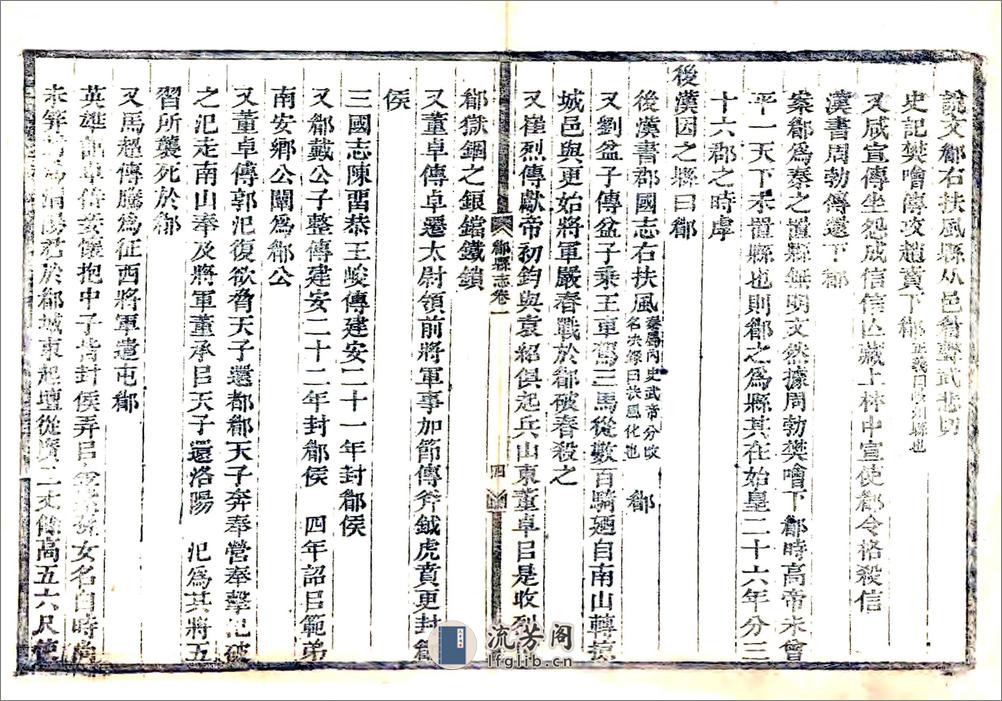 說文郿右扶風縣从邑眉聲武悲切
史記樊噲傳攻趙賁下郿正義曰岐州縣也
又咸宣傳坐怨成信信亡藏上林中宣使郿令格殺信
漢書周勃傳還下郿
案郿爲秦之置縣無明文然據周勃樊噲下郿時高帝未曾
平一天下未置縣也則郿之爲縣其在始皇二十六年分三
十六郡之時虖
後漢因之縣曰郿
後漢書郡國志右扶風秦屬內史武帝分改名決錄曰扶風化也 郿
又劉盆子傳盆子乘王車駕三馬從數百騎廼自南山轉掠
城邑與更始將軍嚴春戰於郿破春殺之
又崔烈傳獻帝初鈞與袁紹俱起兵山東董卓㠯是收烈
郿縣志卷一
四
郿獄錮之銀鐺鐵鎖
又董卓傳卓遷太尉領前將軍事加節傳斧鉞虎賁更封郿
侯
三國志陳畱恭王峻傳建安二十一年封郿侯
又郿戴公子整傳建安二十二年封郿侯 四年詔㠯範弟
南安鄉公闡爲郿公
又董卓傳郭汜復欲脅天子還都郿天子奔奉營奉擊汜破
之汜走南山奉及將軍董承㠯天子還洛陽 汜爲其將五
習所襲死於郿
又馬超傳騰爲征西將軍遣屯郿
英雄記卓侍妾懷抱中子皆封侯弄㠯金紫孫女名白時尚
未笄封爲渭陽君於郿城東起壇從廣二丈餘高五六尺使
流芳阁
lfglib.cn